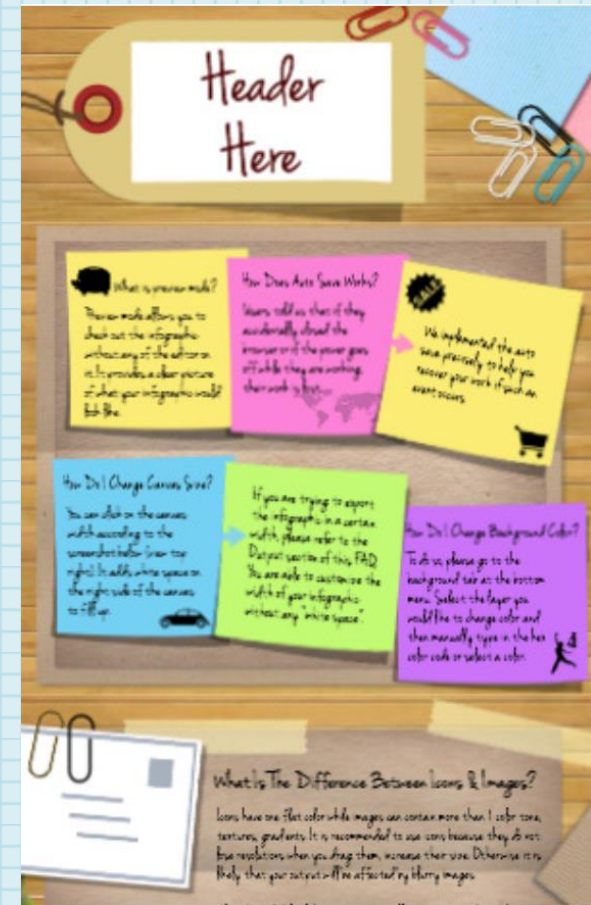 Header
Here
What is preview mode?
Preview mode allows you to
check out the infographic
without any of the editor on
it. It provides a clear picture
of what your infographic would
look like.
How Does Auto Save Works?
Users told us that if they
accidentally closed the
browser or if the power goes
off while they are working,
their work is lost.
SALE
We implemented the auto
save precisely to help you
recover your work if such an
event occurs.
How Do I Change Canvas Size?
You can click on the canvas
width according to the
screenshot below (view top
right). It adds white space on
the right side of the canvas
to fill up.
If you are trying to export
the infographic in a certain
width, please refer to the
Output section of this FAQ.
You are able to customize the
width of your infographic
without any "white space".
How Do I Change Background Color?
To do so, please go to the
background tab at the bottom
menu. Select the layer you
would like to change color and
then manually type in the hex
color code or select a color.
What Is The Difference Between Icons & Images?
Icons have one flat color while images can contain more than 1 color tone,
textures, gradients. It is recommended to use icons because they do not
lose resolutions when you drag them, increase their size. Otherwise it is
likely that your output will be affected by blurry images